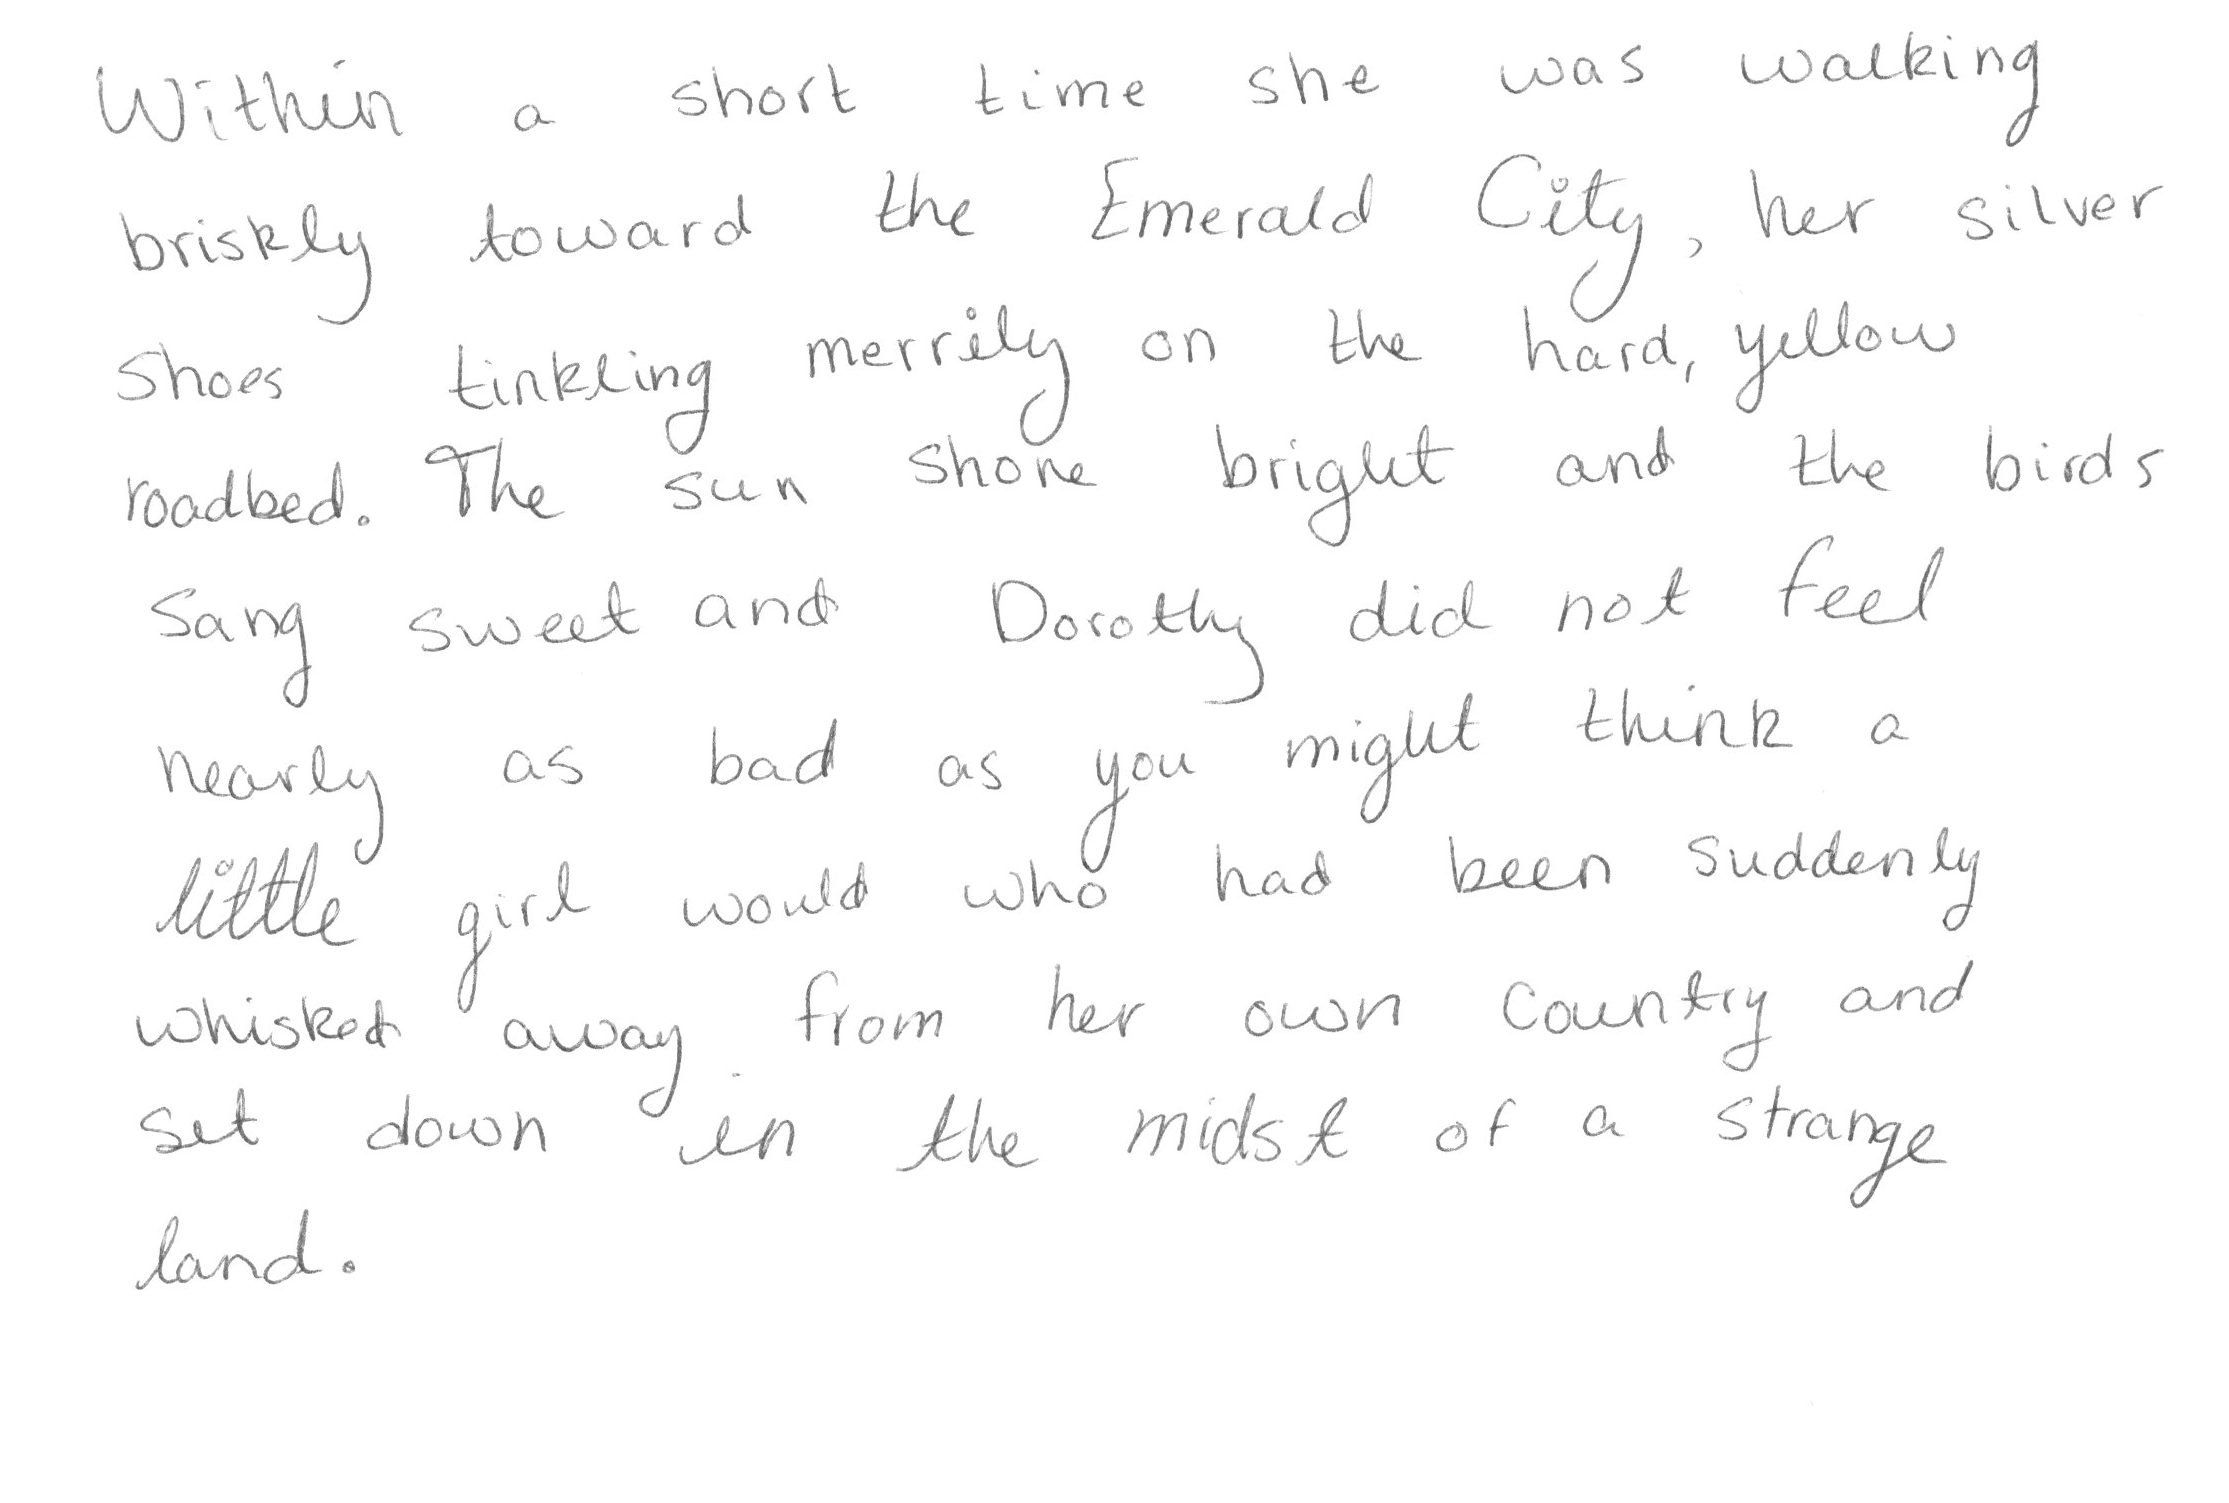 Within a short time she was walking
briskly toward the Emerald City, her silver
shoes tinkling merrily on the hard, yellow
roadbed. The sun shone bright and the birds
sang sweet and Dorothy did not feel
nearly as bad as you might think a
little girl would who had been suddenly
whisked away from her own country and
set down in the midst of a strange
land.